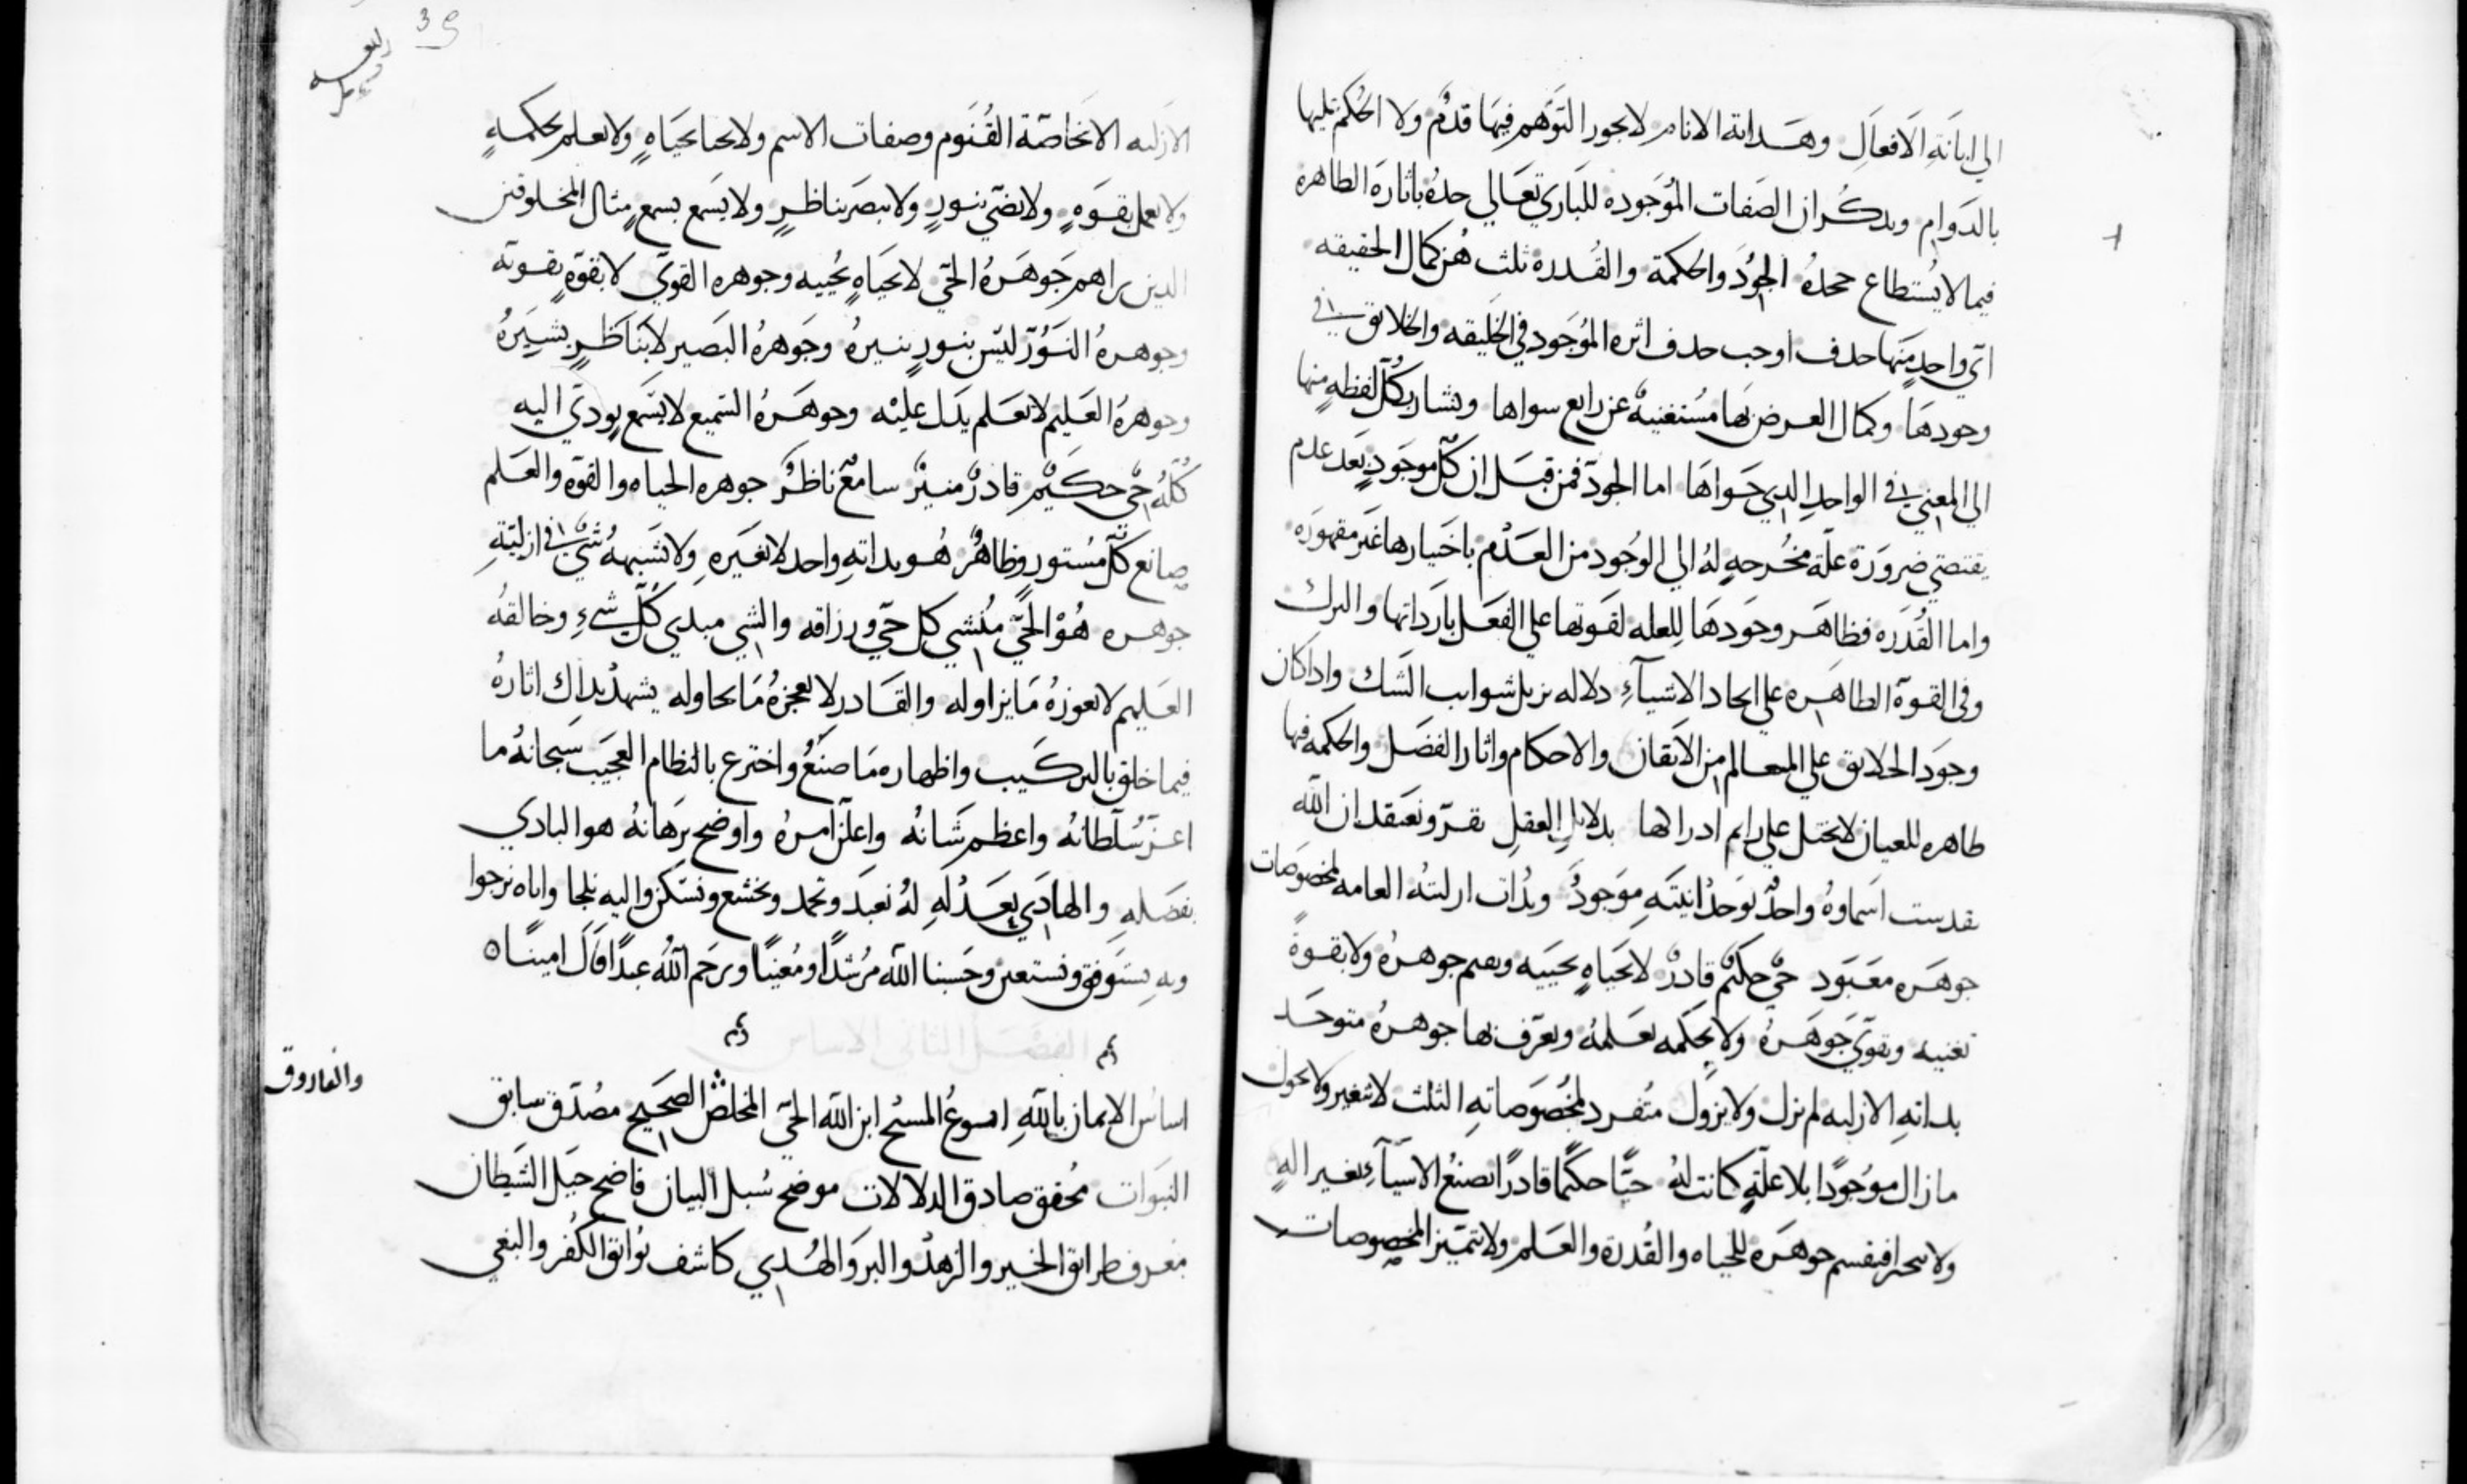 الي ابانَةِ الَافعاَلِ وهَدايةالانام لايجوز التَوَهم فِيهَا قدمٌ ولا الحُكم عليها
بالدَوامِ وبدكر ان الصَفات المُوَجوده للبَاري تَعَالي حدهُ باثارهَ الظاهره
فيما لايُستطاع جحدهُ الجوُدَ والحكمة والقُدره ثلث هُن كمال الحقيقه
اي واحدٍ مَنها حدف اوجب حدف اثره المُوَجود في الخَليقه والخلايق في
وجودهَا وكمال العرض بها مُستغنيةٌ عن رابع سواها ويشار بكُل لفظهٍ منها
الي المعني في الواحدِ الدي حَواهَا اما الجود فمن قبَل ان كل موجَودٍ بَعدَ عدم
يقتضي ضروَرَة علّة مخُرجهٍ لهُ الي الوُجود من العَدَم باختيارها غَير مقهورَه
واما القُدَره فظاهَر وجَودهَا للِعله لقَوتها علي الفعَل بارَداتها والترك
وفي القوة الظاهَره علي ايجاد الاشيآءِ دلاله تزيل شوايب الشَك واداكان
وجوَد الخلايق علي المعالم من الاتقان والاحكام واثار الفضَل والحكمه فيها
ظاهره للعيان لايختل علي رايم ادراكها بدلايل العقلِ نقرّ ونعتقد ان الله
تقدست اسَماوهُ واحدٌ بوَحدْانيَتَهِ موَجودٌ وبدُات ازليته العامه لمخصوَصات
جوهَره معَبَود حيٌ حكيمٌ قادرٌ لابحَياهٍ تحييَه ويعم جوهرهُ ولابقوةً
تغنيه وتقوي جَوهَرهُ ولابحكمه تعَلمهُ ويعَرف بها جوهرهُ متوحَد
بداتهِ الازليه لم يزل ولايزول متُفرد بمخُصوَصاتهِ الثلث لاتغير ولاتحول
مازال موُجوُدًا بلاعلّةٍ كانت لهُ حيًّا حكيمًا قادرًا يصنعُ الاشيَآءِ بغير الهٍ
ولا فينقسم جوهَره للحياه والقُدرة والعَلم ولاتتميز المخصوصات
الازليه الاخاصّة القُنَوم وصفات الاسم ولايحيا بحَيَاهٍ ولايعلم بحكمهٍ
ولايعمل بقوَهٍ ولايضيّ بنورٍ ولايبصَر بناظرٍ ولايسَمع بسمعٍ مثال المخلوقين
الدين براهم جَوهَرهُ الحَيّ لابحَيَاهٍ تحُييه وجوهره القويّ لابقوّةٍ تقوته
وجوهرهُ النَوُرّ ليَس بنورٍ ينيرهُ وجَوهرهُ البَصير لابنَاظرٍ يشيَرهُ
وجوهرهُ العَليم لابعَلم يدَل عليْه وجوهَرهُ السَميع لابسَمع يودي اليه
كُلهُ حيٌ حكيمٌ قادرٌ منيرٌ سامعٌ ناظرٌ جوهره الحياه والقوة والعَلم
صانع كلّ مسُتورٍ وظاهرٌ هُو بداتهِ واحد لابغَيَره ولايشَبهُ شيٌ في ازليتهِ
جوهره هُوْ الحَيّ منُشي كل حَيّ ورزاقه والشي مبدي كُلّ شيءِ وخالقهُ
العَليم لايعوزهُ مَايزاوله والقَادر لايعجزهُ مَايحاوله يشهدْ بداك اثارهُ
فيما خلق بالتركيَب واظهاره مَاصنَعُ واخترع بالنظام العجَيب سَبحانهُ ما
اعزّ سُلطانهُ واعظم شَانهُ واعلَن امرهُ واوضح برَهانهُ هو البادي
بفضَلهِ والهادَي بعَدْلهِ لهُ نعَبدَ ونحمد ونخشع ونستكن واليه نلجا واياه نرجوا
وبهِ نستَوفق ونستعين وحَسبنا الله مرُشدًا ومُعَينًا ويرحَم اللهُ عبدًا قاَلَ امينًا ٥
الفصَل الثاني الاساس
اساسُ الايمان باللهِ ايسوعُ المسَيح ابن الله الحَيّ المخلص الصحَيح مصُدَق سابق
النبَوات محُقق صادق الدلالات موضح سُبل البيان فاضح حيَل الشَيطان
معرف طرايق الخير والزهدْ والبر وَالهُدي كاشف بوايق الكفُر والبغي
والفاروق
39